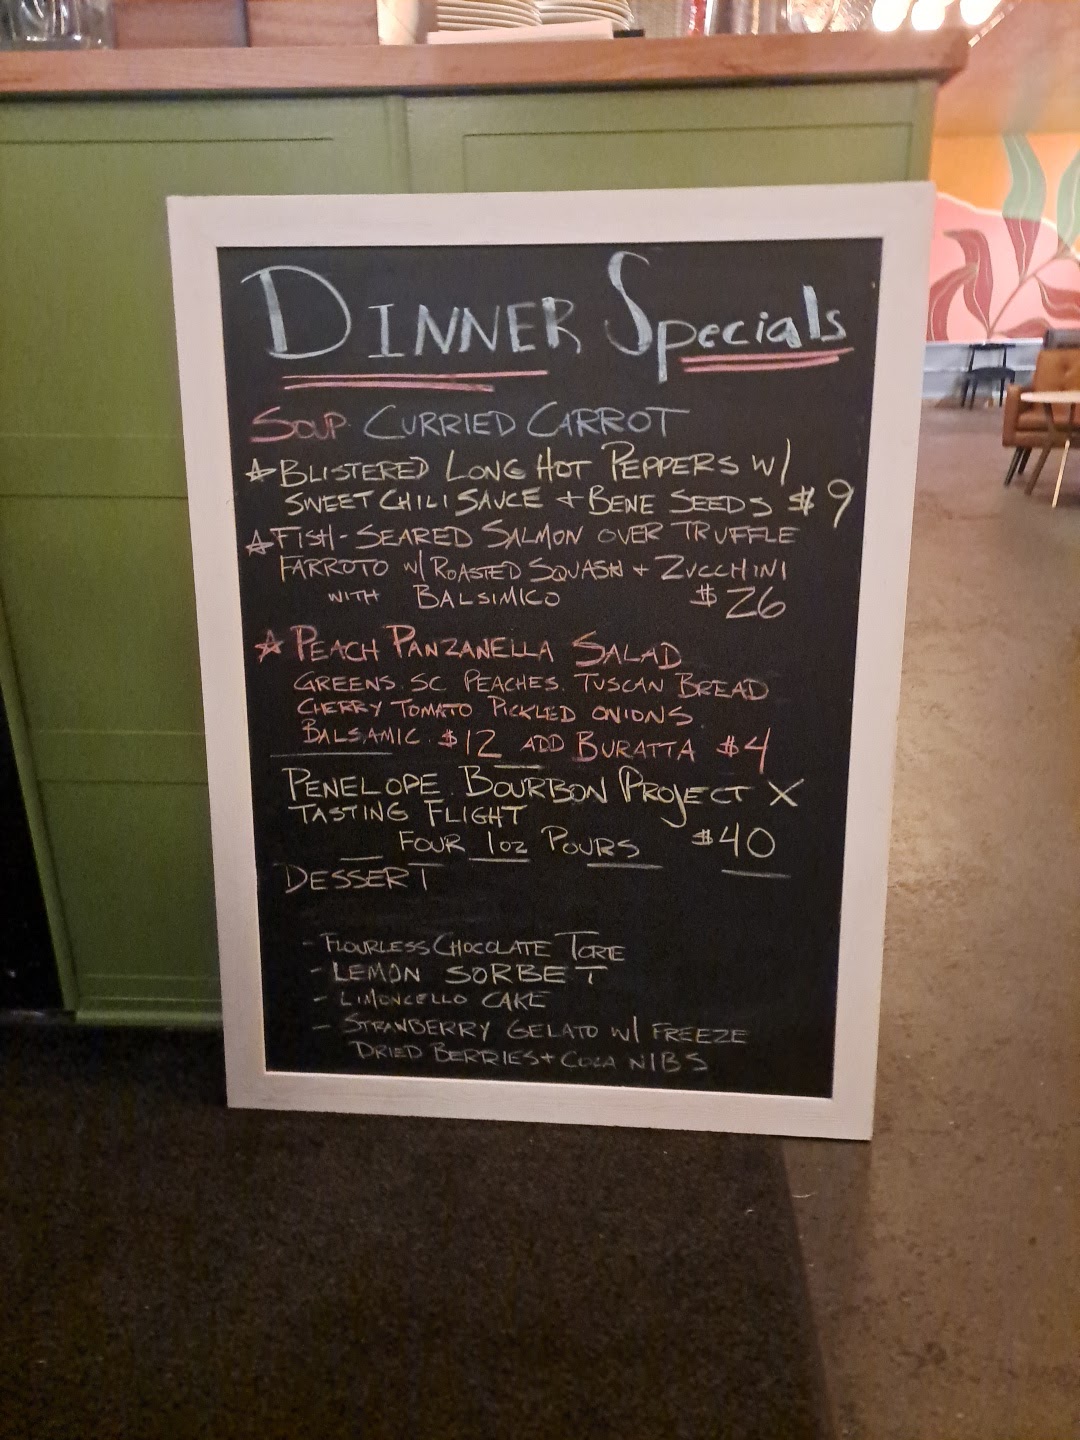 DINNER Specials
SOUP CURRIED CARROT
☆ BLISTERED LONG HOT PEPPERS W/
SWEET CHILI SAUCE + BENE SEEDS $9
☆ FISH - SEARED SALMON OVER TRUFFLE
FARROTO W/ ROASTED SQUASH + ZUCCHINI
WITH BALSIMICO $26
☆ PEACH PANZANELLA SALAD
GREENS. SC PEACHES. TUSCAN BREAD
CHERRY TOMATO PICKLED ONIONS.
BALSAMIC. $12 ADD BURATTA $4
PENELOPE. BOURBON PROJECT X
TASTING FLIGHT
FOUR 1oz POURS $40
DESSERT
- FLOURLESS CHOCOLATE TORTE
- LEMON SORBET
- LIMONCELLO CAKE
- STRAWBERRY GELATO W/ FREEZE
DRIED BERRIES + COCA NIBS